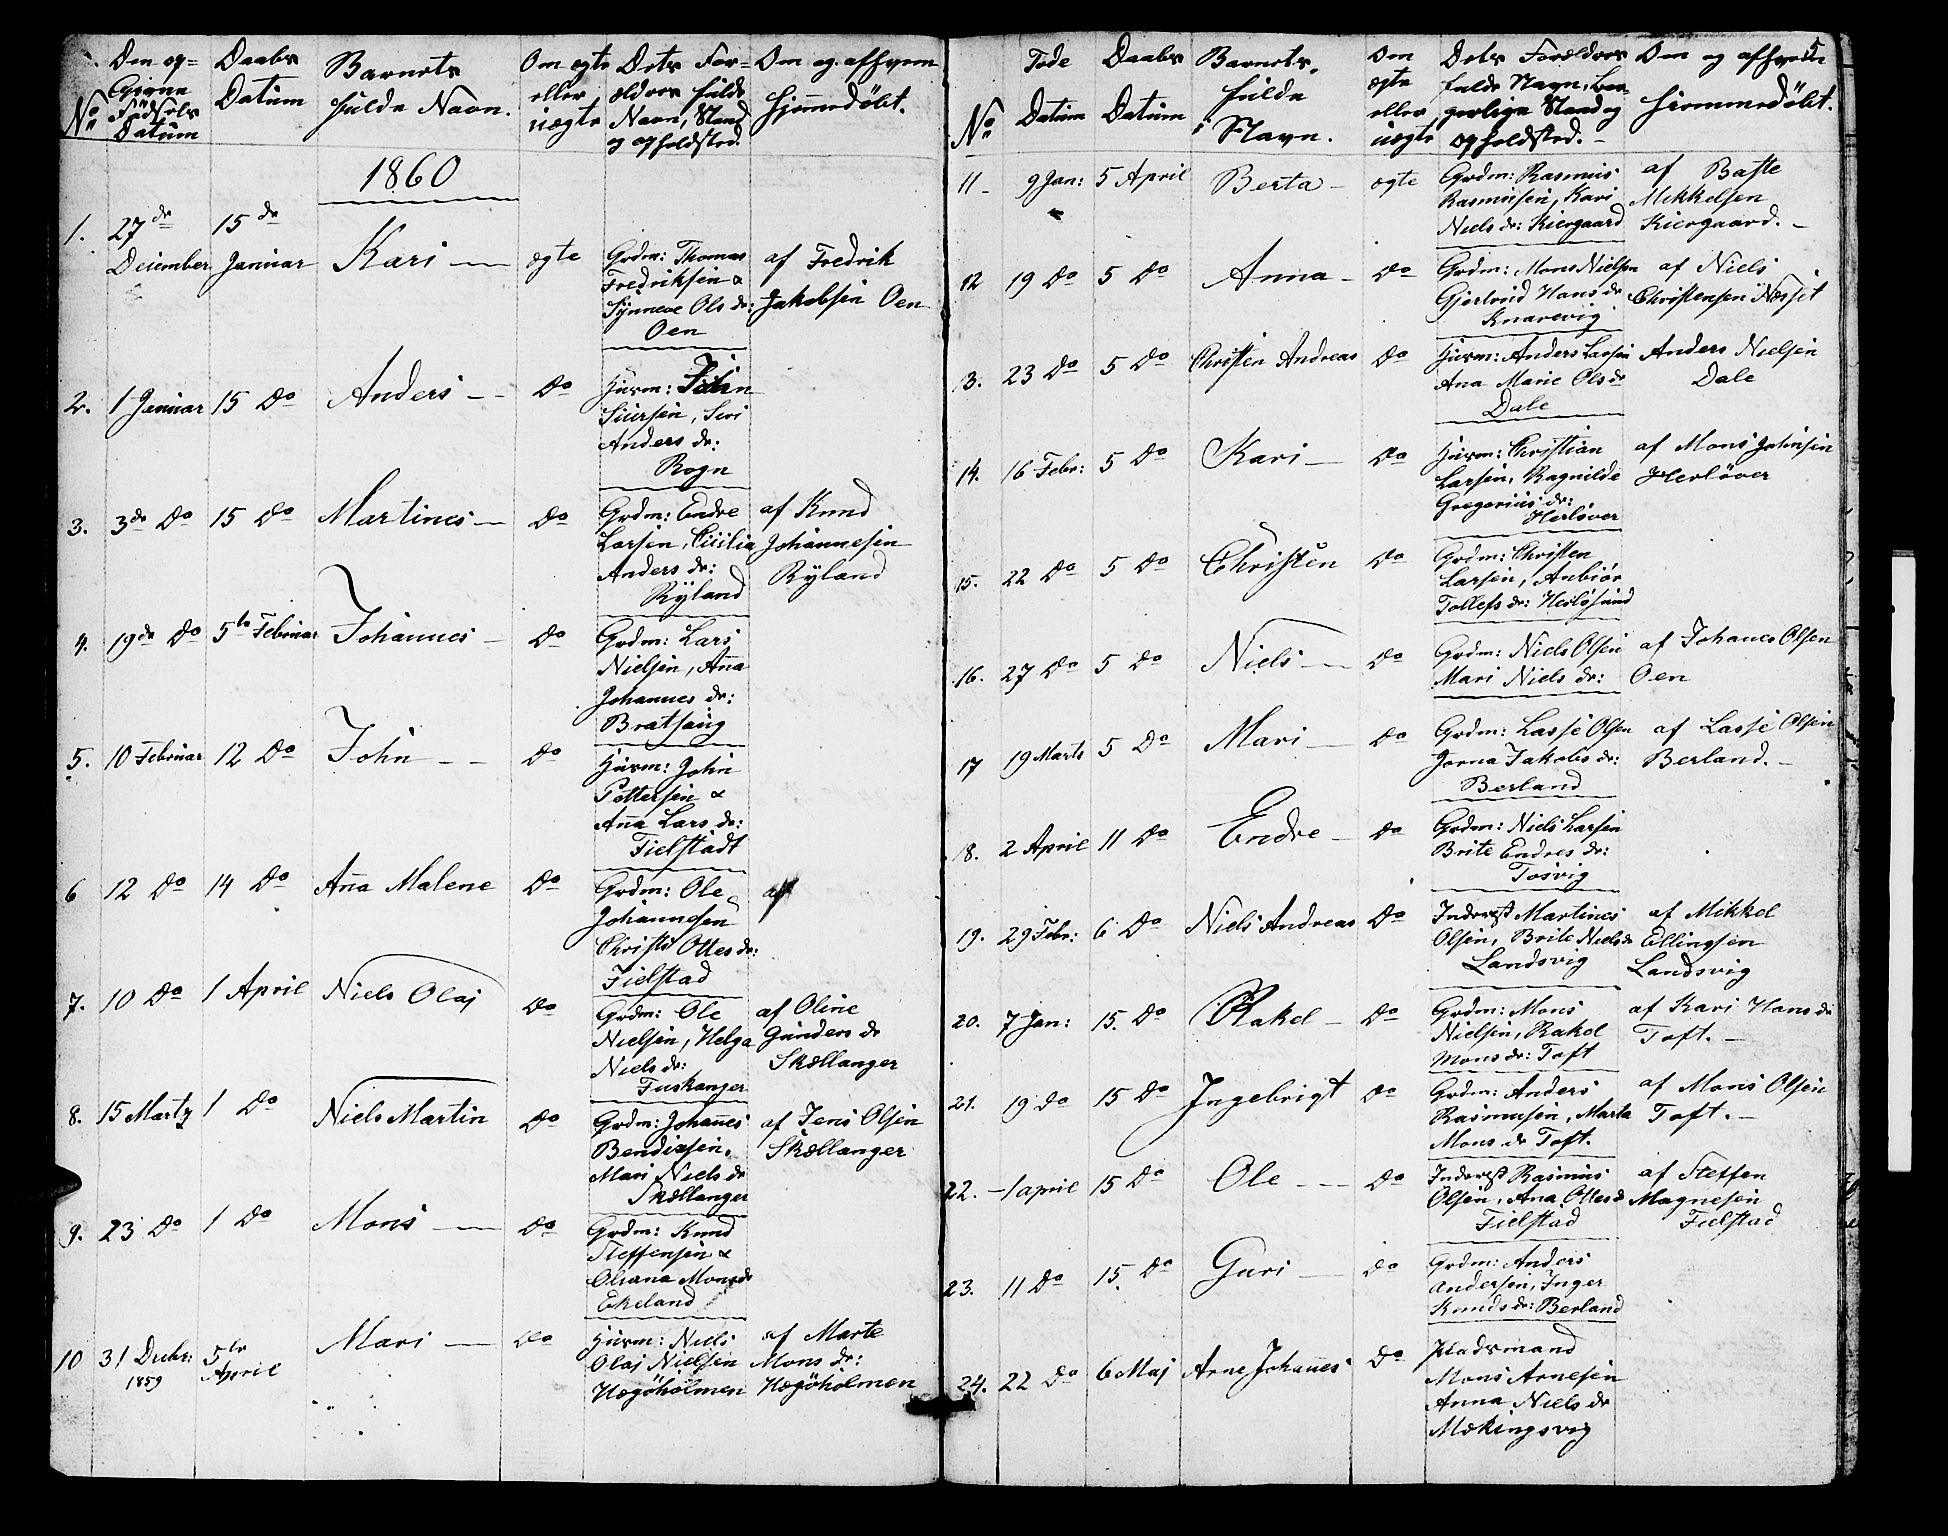 Den op-
Givne
Fødsels
Datum
No
Daabs
Datum
Barnets
fulde Navn.
Om ægte
eller
uægte
Dets For-
ældres fulde
Navn, Stand
og opholdsted.
Om og afhvem
hjemmedöbt.
1860
1. 27de December 15de Januar Kari — ægte
Grdm: Thomas
Fredriksen &
Synneve Ols dr:
Oen
af Fredrik
Jakobsen Oen
2. 1 Januar 15 Do Anders — Do
Huvm: John
Siursen, Siri
Anders dr:
Rogn
3. 3de Do 15 Do Martines — Do
Grdm: Endre
Larsen, Cicilia
Anders dr:
Ryland
af Knud
Johannesen
Ryland
4. 19de Do 5te Februar Johannes — Do
Grdm: Lars
Nielsen, Aña
Johannes dr:
Bratsaug
5. 10 Februar 12 Do John — Do
Huvm: John
Pettersen &
Aña Lars dr:
Fielstadt
6 12 Do 14 Do Aña Malene Do
Grdm: Ole
Johannesen
Christi Ottes dr:
Fielstad
af
7. 10 Do 1 April Niels Olaj Do
Grdm: Ole
Nielsen, Helga
Niels dr:
Fuskanger
af Oline
Gunders dr
Skællanger
8. 15 Martz 1 Do Niels Martin Do
Grdm: Johañes
Bendixsen,
Mari Niels dr
Skællanger
af Jens Olsen
Skællanger
9. 23 Do 1 Do Mons — Do
Grdm: Knud
Steffensen &
Oliana Mons dr
Ekeland
10 31 Decbr: 1859 5te April Mari — Do
Huvm: Niels
Olaj Nielsen
Hægöholmen
af Marte
Mons dr:
Hægöholmen
5
No
Føde
Datum
Daabs
Datum
Barnets
fulde
Navn.
Om
ægte
eller
uægte
Dets Forældres
fulde Navn, Bor-
gerlige Stand og
opholdsted. -
Om og afhvem
hjemmedöbt.
11 - 9 Jan: 5 April Berta — ægte
Grdm: Rasmus
Rasmusen, Kari
Niels dr: Kiergaard
af Baste
Mikkelsen
Kiergaard. -
12 19 Do 5 Do Anna — Do
Grdm: Mons Nielsen
Gjertrud Hans dr
Knarevig
af Niels
Christensen Næsset
13. 23 Do 5 Do Christen Andreas Do
Huvm: Anders Larsen
Ana Marie Ols dr
Dale
Anders Nielsen
Dale
14. 16 Febr: 5 Do Kari — Do
Huvm: Christian
Larsen, Ragnilde
Gregorius dr:
Herlöver
af Mons Johnsen
Herlöver
15. 22 Do 5 Do Christen Do
Grdm: Christen
Larsen, Anbiör
Tollefs dr: Herlösund
16. 27 Do 5 Do Niels — Do
Grdm: Niels Olsen
Mari Niels dr:
af Johanes Olsen
Oen
17 19 Marts 5 Do Mari — Do
Grdm: Lasse Olsen
Jorna Jakobs dr:
Berland
af Lasse Olsen
Berland. -
18. 2 April 11 Do Endre — Do
Grdm: Niels Larsen
Brite Endres dr:
Tosvig
19. 29 Febr: 6 Do Niels Andreas Do
Inderst Martines
Olsen, Brite Niels dr
Landsvig
af Mikkel
Ellingsen
Landsvig
20. 7 Jan: 15. Do Rakel — Do
Grdm: Mons
Nielsen, Rakel
Mons dr: Toft
af Kari Hans dr
Toft. -
21. 19 Do 15 Do Ingebrigt Do
Grdm: Anders
Rasmusen, Marta
Mons dr Toft.
af Mons Olsen
Toft. -
22. - 1 april 15 Do Ole — Do
Inderst Rasmus
Olsen, Ana Ottes dr
Fielstad
af Steffen
Magnesen
Fielstad
23. 11 Do 15. Do Guri — Do
Grdm: Anders
Andersen, Inger
Knuds dr: Berland
24. 22 Do 6 Maj Arne Johañes Do
Pladsmand
Mons Arnesen
Anna Niels dr
Mækingsvig